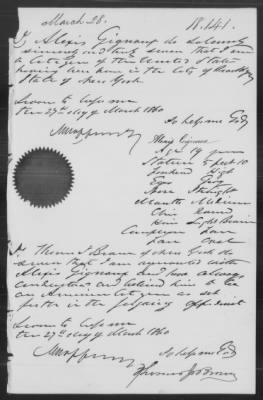 March 28. 18.141.
I, Alexis Gignoux do solemnly
sincerely and truly swear that I am
a citizen of the United States
having been born in the City of Brooklyn
State of New York
Sworn to before me
this 27th day of March 1860
So help me God
Alexis Gignoux
Age 19 years
Stature 5 feet 10
Forehead High
Eyes Grey
Nose Straight
Mouth Medium
Chin Round
Hair Light Brown
Complexion Fair
Face Oval
I, Thomas J. do
swear that I am acquainted with
Alexis Gignoux and have always
understood and believed him to be
an American Citizen as set
forth in the foregoing affidavit
Sworn to before me
this 27th day of March 1860
So help me God
Thomas